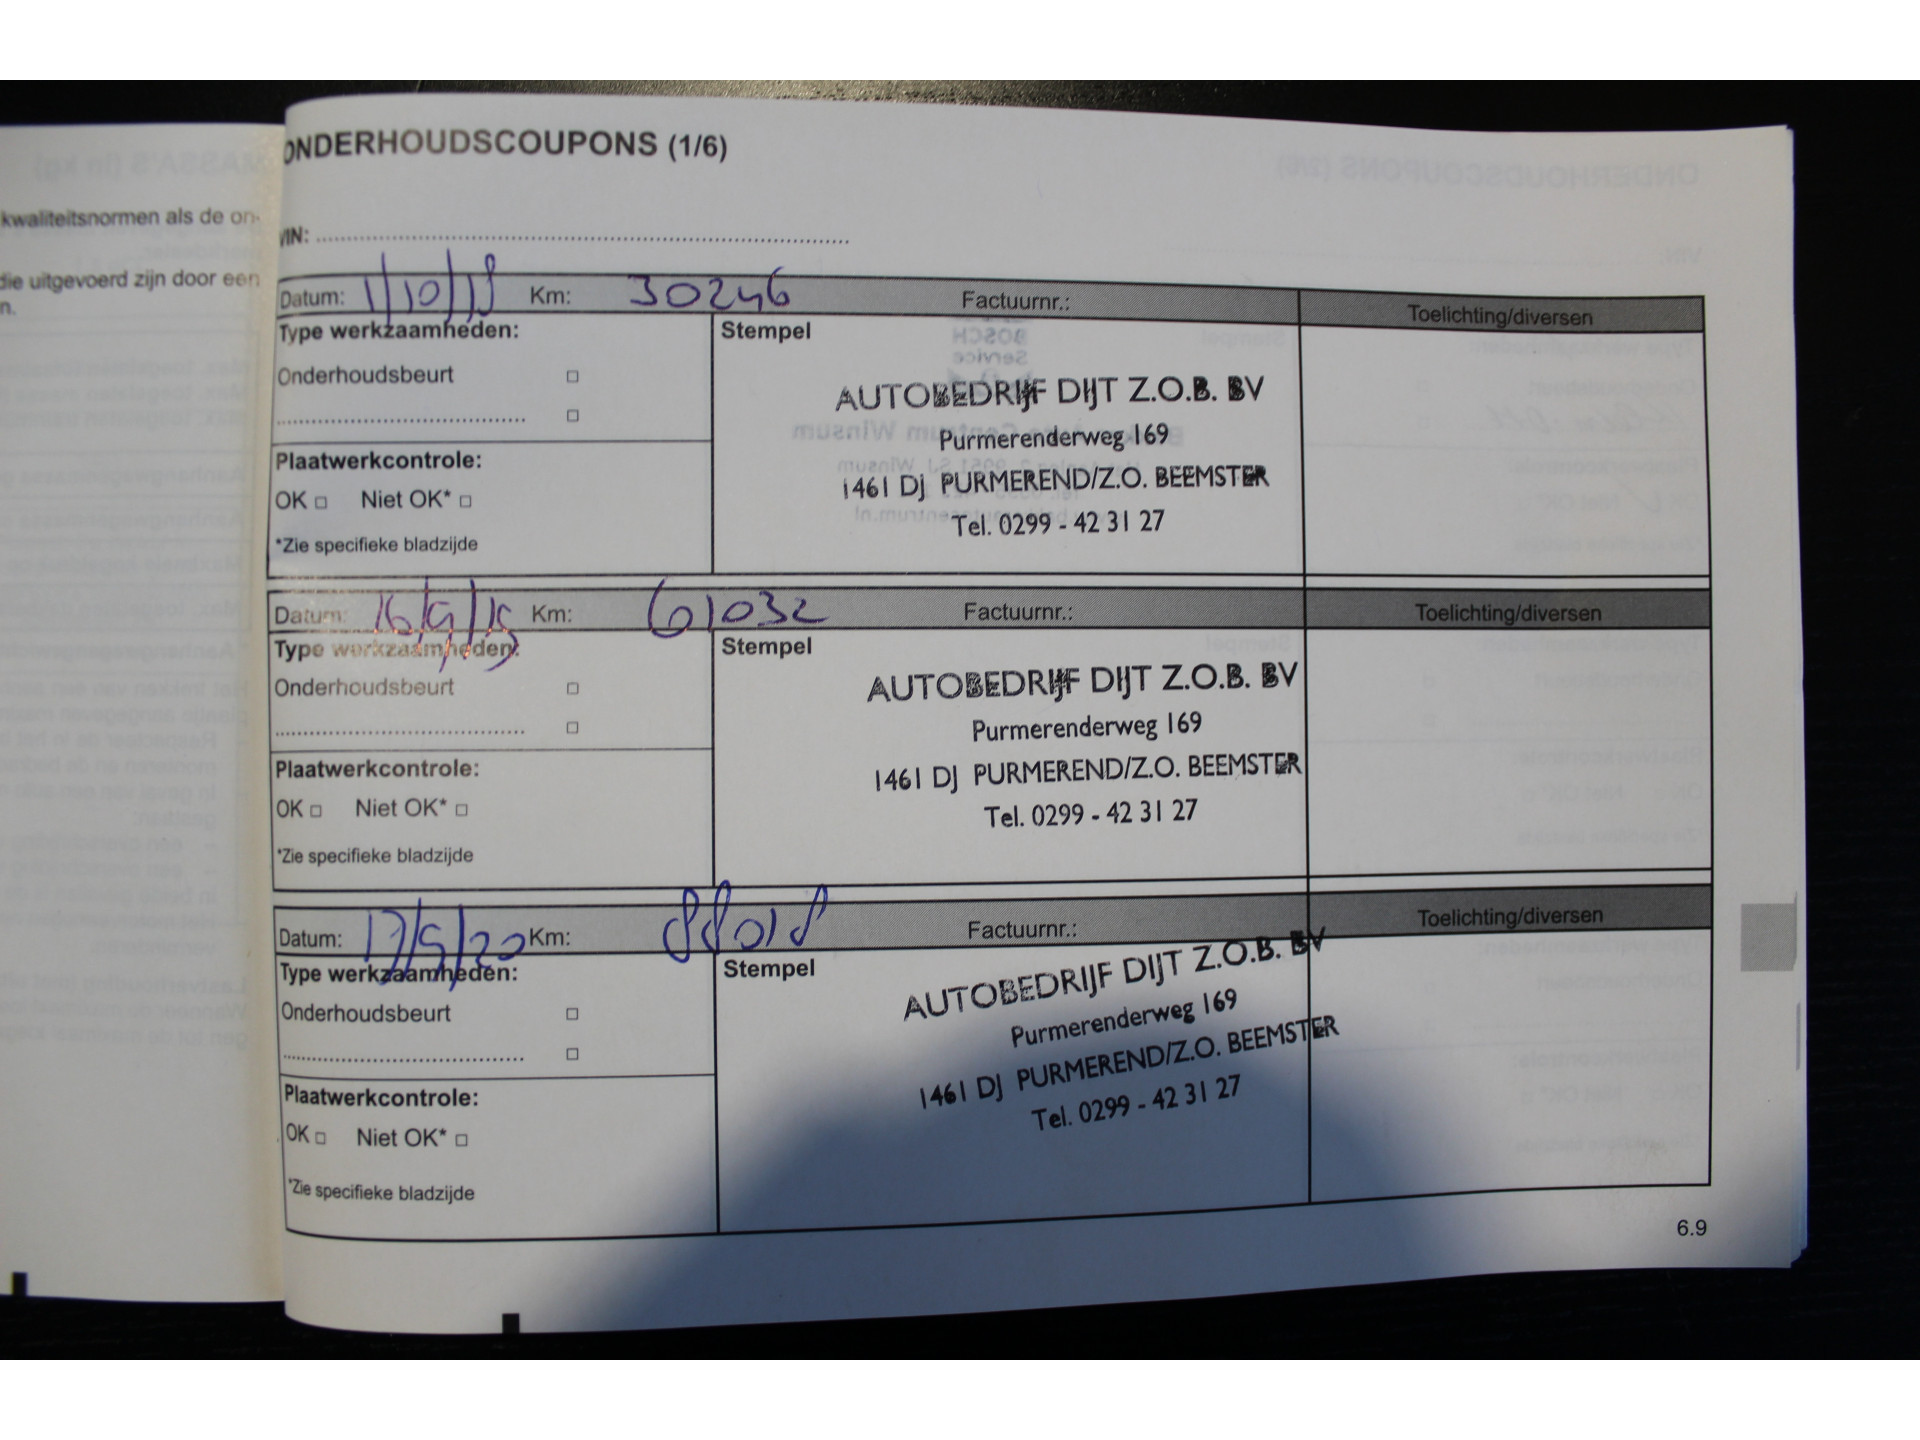 kwaliteitsnormen als de on-
die uitgevoerd zijn door een
n.
ONDERHOUDSCOUPONS (1/6)
VIN: ........................................
Datum: 1/10/18 Km: 30246 Factuurnr.: Toelichting/diversen
Type werkzaamheden: Stempel
Onderhoudsbeurt □
........................................ □
Plaatwerkcontrole:
OK □ Niet OK* □
*Zie specifieke bladzijde
AUTOBEDRIJF DIJT Z.O.B. BV
Purmerenderweg 169
1461 DJ PURMEREND/Z.O. BEEMSTER
Tel. 0299 - 42 31 27
Datum: 16/9/19 Km: 61032 Factuurnr.: Toelichting/diversen
Type werkzaamheden: Stempel
Onderhoudsbeurt □
........................................ □
Plaatwerkcontrole:
OK □ Niet OK* □
*Zie specifieke bladzijde
AUTOBEDRIJF DIJT Z.O.B. BV
Purmerenderweg 169
1461 DJ PURMEREND/Z.O. BEEMSTER
Tel. 0299 - 42 31 27
Datum: 17/9/20 Km: 88018 Factuurnr.: Toelichting/diversen
Type werkzaamheden: Stempel
Onderhoudsbeurt □
........................................ □
Plaatwerkcontrole:
OK □ Niet OK* □
*Zie specifieke bladzijde
AUTOBEDRIJF DIJT Z.O.B. BV
Purmerenderweg 169
1461 DJ PURMEREND/Z.O. BEEMSTER
Tel. 0299 - 42 31 27
6.9